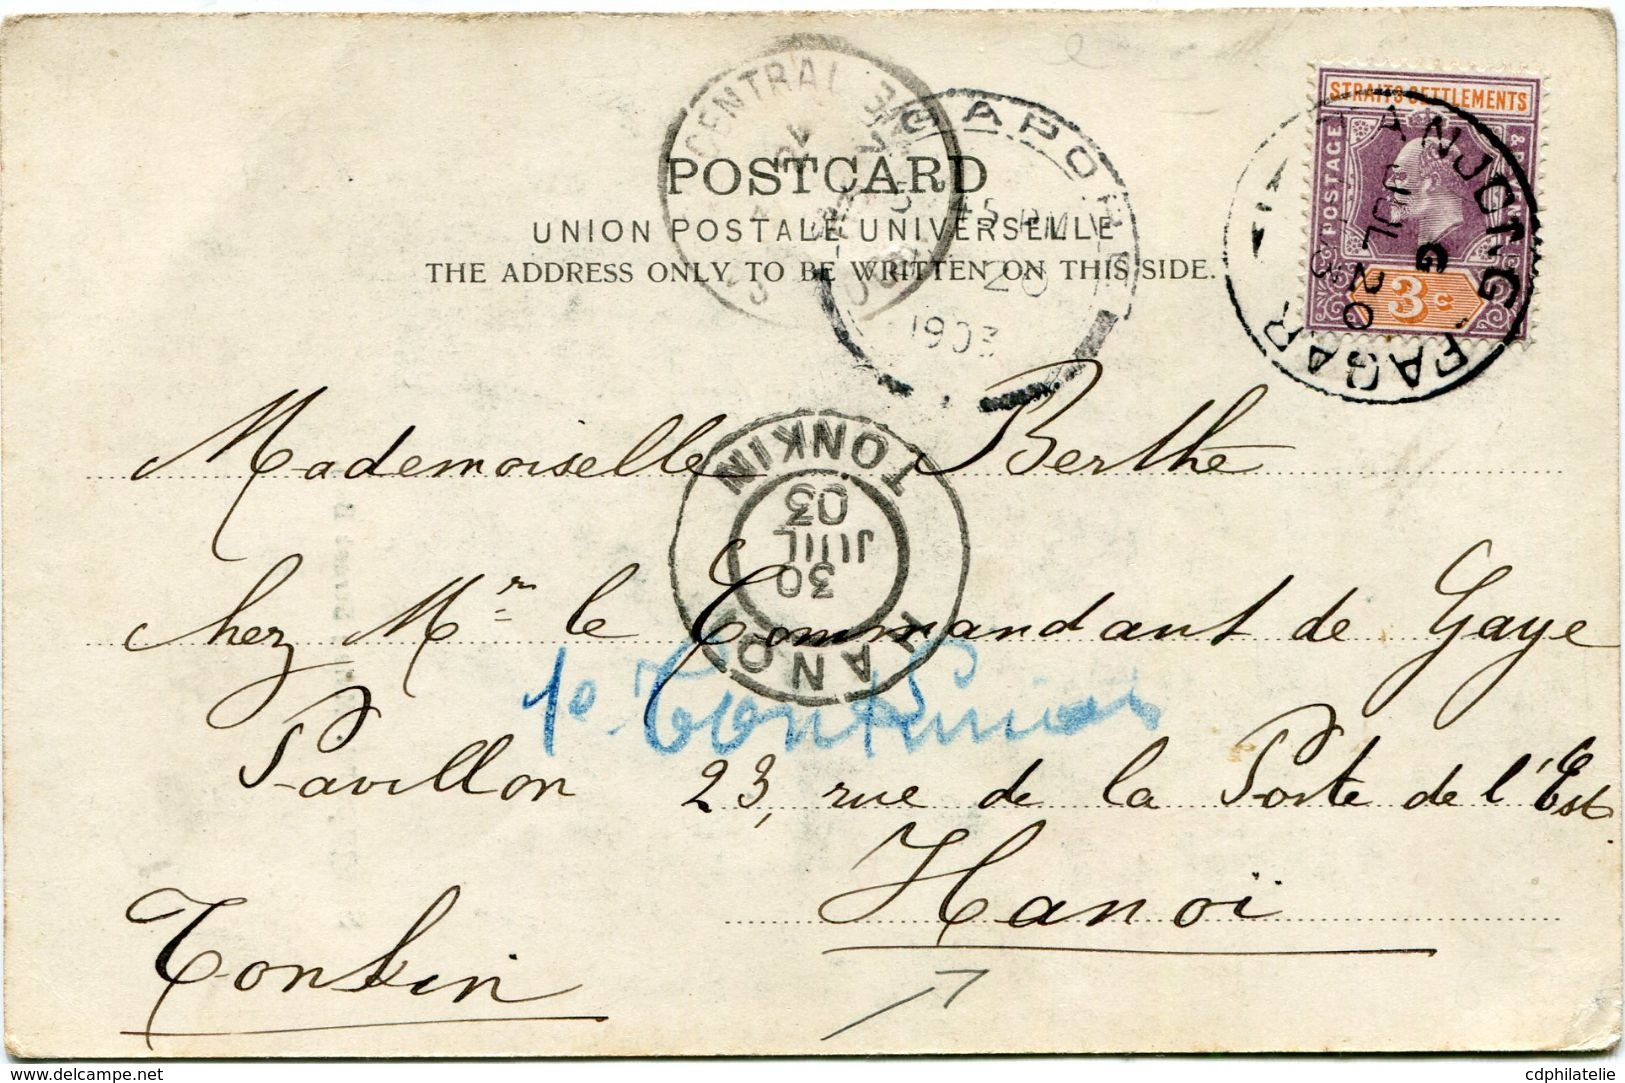 STRAITS SETTLEMENTS
POSTAGE
3c
TANJONG PAGAR
G
JUL 20
3
CENTRAL
SINGAPORE
45 PM
20
1903
POSTCARD
UNION POSTALE UNIVERSELLE
THE ADDRESS ONLY TO BE WRITTEN ON THIS SIDE.
Mademoiselle Berthe
HANOI
30
JUIL
03
TONKIN
chez Mr. le Commandant de Gaye
1e Tonkinois
Pavillon 23, rue de la Porte de l'Est.
Hanoï
Tonkin
www.delcampe.net
cdphilatelie